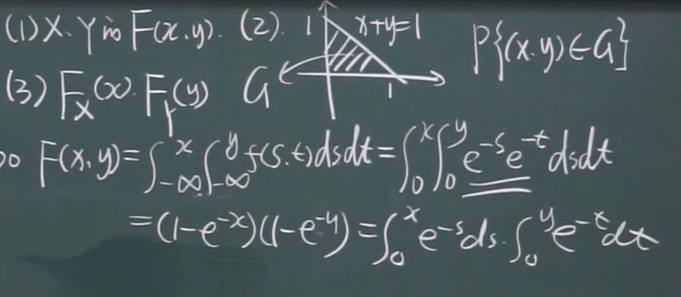 (1) X. Y的 F(x,y). (2). 1 x+y=1 P{(x.y)∈G}
(3) F_X(x). F_Y(y) G 1
F(x,y)=∫_{-∞}^{x}∫_{-∞}^{y} f(s.t)dsdt=∫_0^x∫_0^y e^{-s}e^{-t}dsdt
=(1-e^{-x})(1-e^{-y})=∫_0^x e^{-s}ds.∫_0^y e^{-t}dt